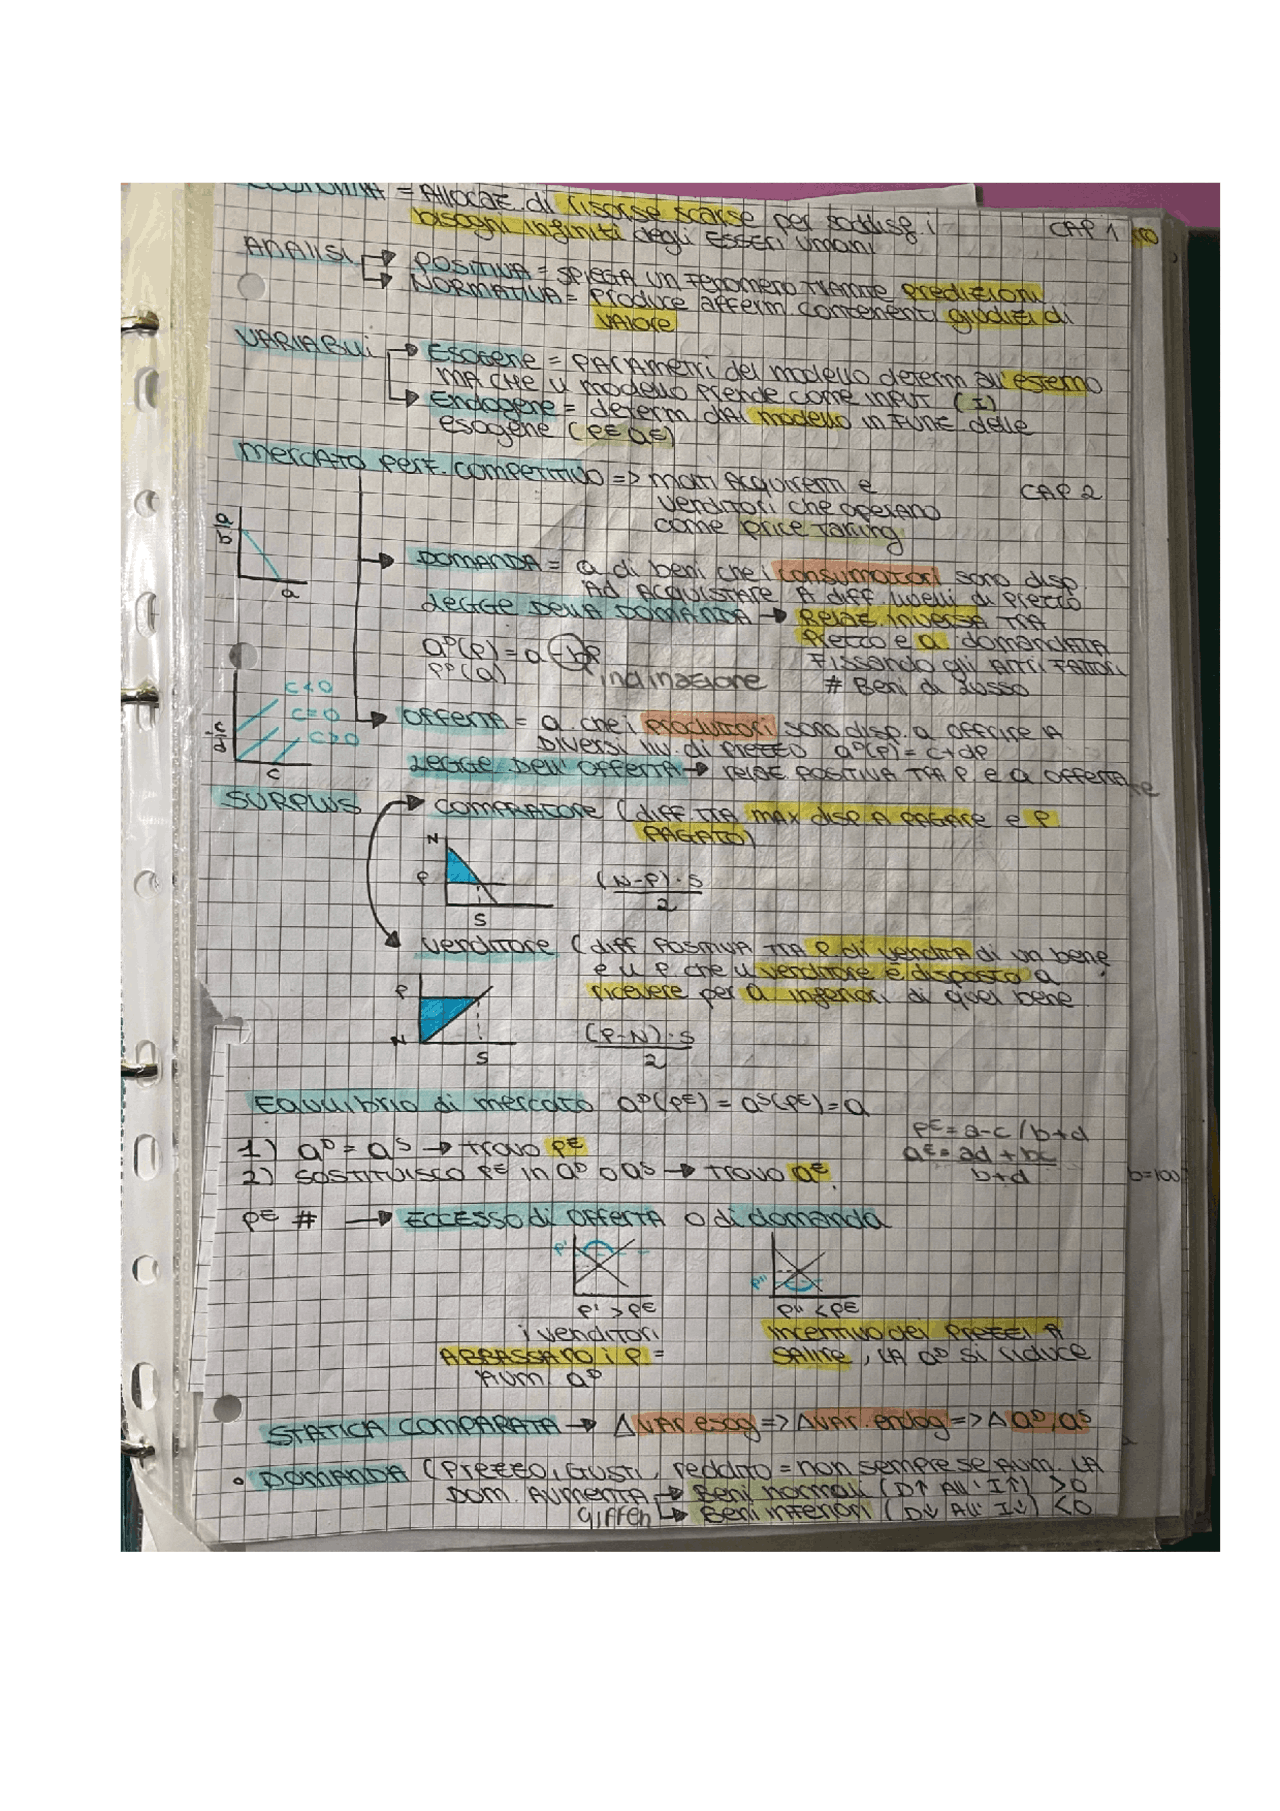 ECONOMIA = Allocaz. di risorse scarse per soddisf. i
bisogni infiniti degli esseri umani
CAP 1
ANALISI → POSITIVA = SPIEGA UN FENOMENO TRAMITE PREDIZIONI
→ NORMATIVA = Produce afferm. contenenti giudizi di
VALORE
VARIABILI → Esogene = PARAMETRI del modello determ all'esterno
MA CHE il modello prende come INPUT (I)
→ Endogene = determ. dal modello in FUNZ delle
esogene (PE QE)
mercato perf. competitivo => molti Acquirenti e
venditori che operano
come price taking
CAP 2
a/b
a
→ DOMANDA = Q di beni che i consumatori sono disp.
AD ACQUISTARE A diff livelli di prezzo
LEGGE DELLA DOMANDA → RELAZ INVERSA TRA
Prezzo e Q domandata
Fissando gli altri fattori
# Beni di lusso
QD(P) = a - bP
PD(Q)
inclinazione
C<0
C=0
C>0
-c/d
C
→ OFFERTA = Q che i produttori sono disp. a offrire a
DIVERSI liv. di prezzo QS(P) = c+dP
LEGGE DELL'OFFERTA → relaz. positiva tra P e Q offerta
SURPLUS
→ COMPRATORE (diff TRA max disp A pagare e P
PAGATO)
N
P
S
(N-P)·S/2
→ venditore (diff POSITIVA TRA P di vendita di un bene
e il P che il venditore è disposto a
ricevere per Q inferiori di quel bene
P
N
S
(P-N)·S/2
Equilibrio di mercato QD(PE) = QS(PE) = Q
1) QD = QS → TROVO PE
2) SOSTITUISCO PE in QD o QS → TROVO QE
PE = a-c/b+d
QE = ad+bc/b+d
b=100
PE # → ECCESSO di OFFERTA o di domanda
P'
P' > PE
P''
P'' < PE
i venditori
ABBASSANO i P =
AUM. QD
incentivo dei prezzi a
salire, LA QD si riduce
STATICA COMPARATA → Δ VAR. esog => Δ VAR. endog => Δ QD, QS
• DOMANDA (Prezzo, Gusti, reddito = non sempre se AUM. LA
DOM. AUMENTA → Beni normali (D↑ All' I↑) >0
giffen → Beni inferiori (D↓ All' I↓) <0